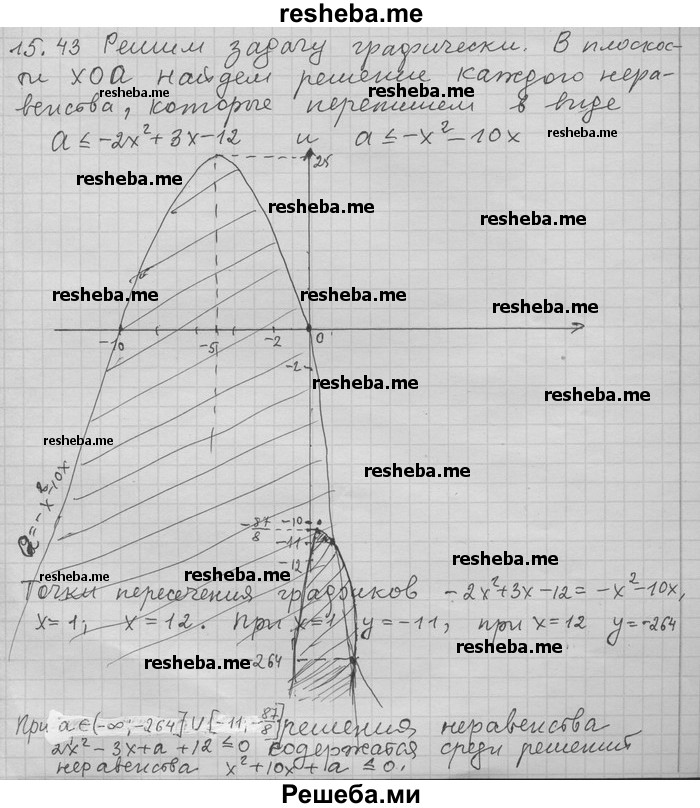 resheba.me
15.43 Решим задачу графически. В плоскос-
ти XOA найдем решение каждого нера-
resheba.me resheba.me
венства, которые перепишем в виде
a ≤ -2x² + 3x - 12 и a ≤ -x² - 10x resheba.me
25
resheba.me
resheba.me resheba.me
resheba.me resheba.me resheba.me
-10 -5 -2 0
-2
resheba.me resheba.me
resheba.me
resheba.me
a = -x² - 10x
-87/8 -10
-11
-12
resheba.me
resheba.me resheba.me
Точки пересечения графиков -2x²+3x-12 = -x²-10x,
x=1; x=12. При x=1 y=-11; при x=12 y=-264
resheba.me
resheba.me -264
При a∈(-∞; -264] ∪ [-11; -87/8] решения неравенства
2x² - 3x + a + 12 ≤ 0 содержатся среди решений
неравенства x² + 10x + a ≤ 0.
Решеба.ми